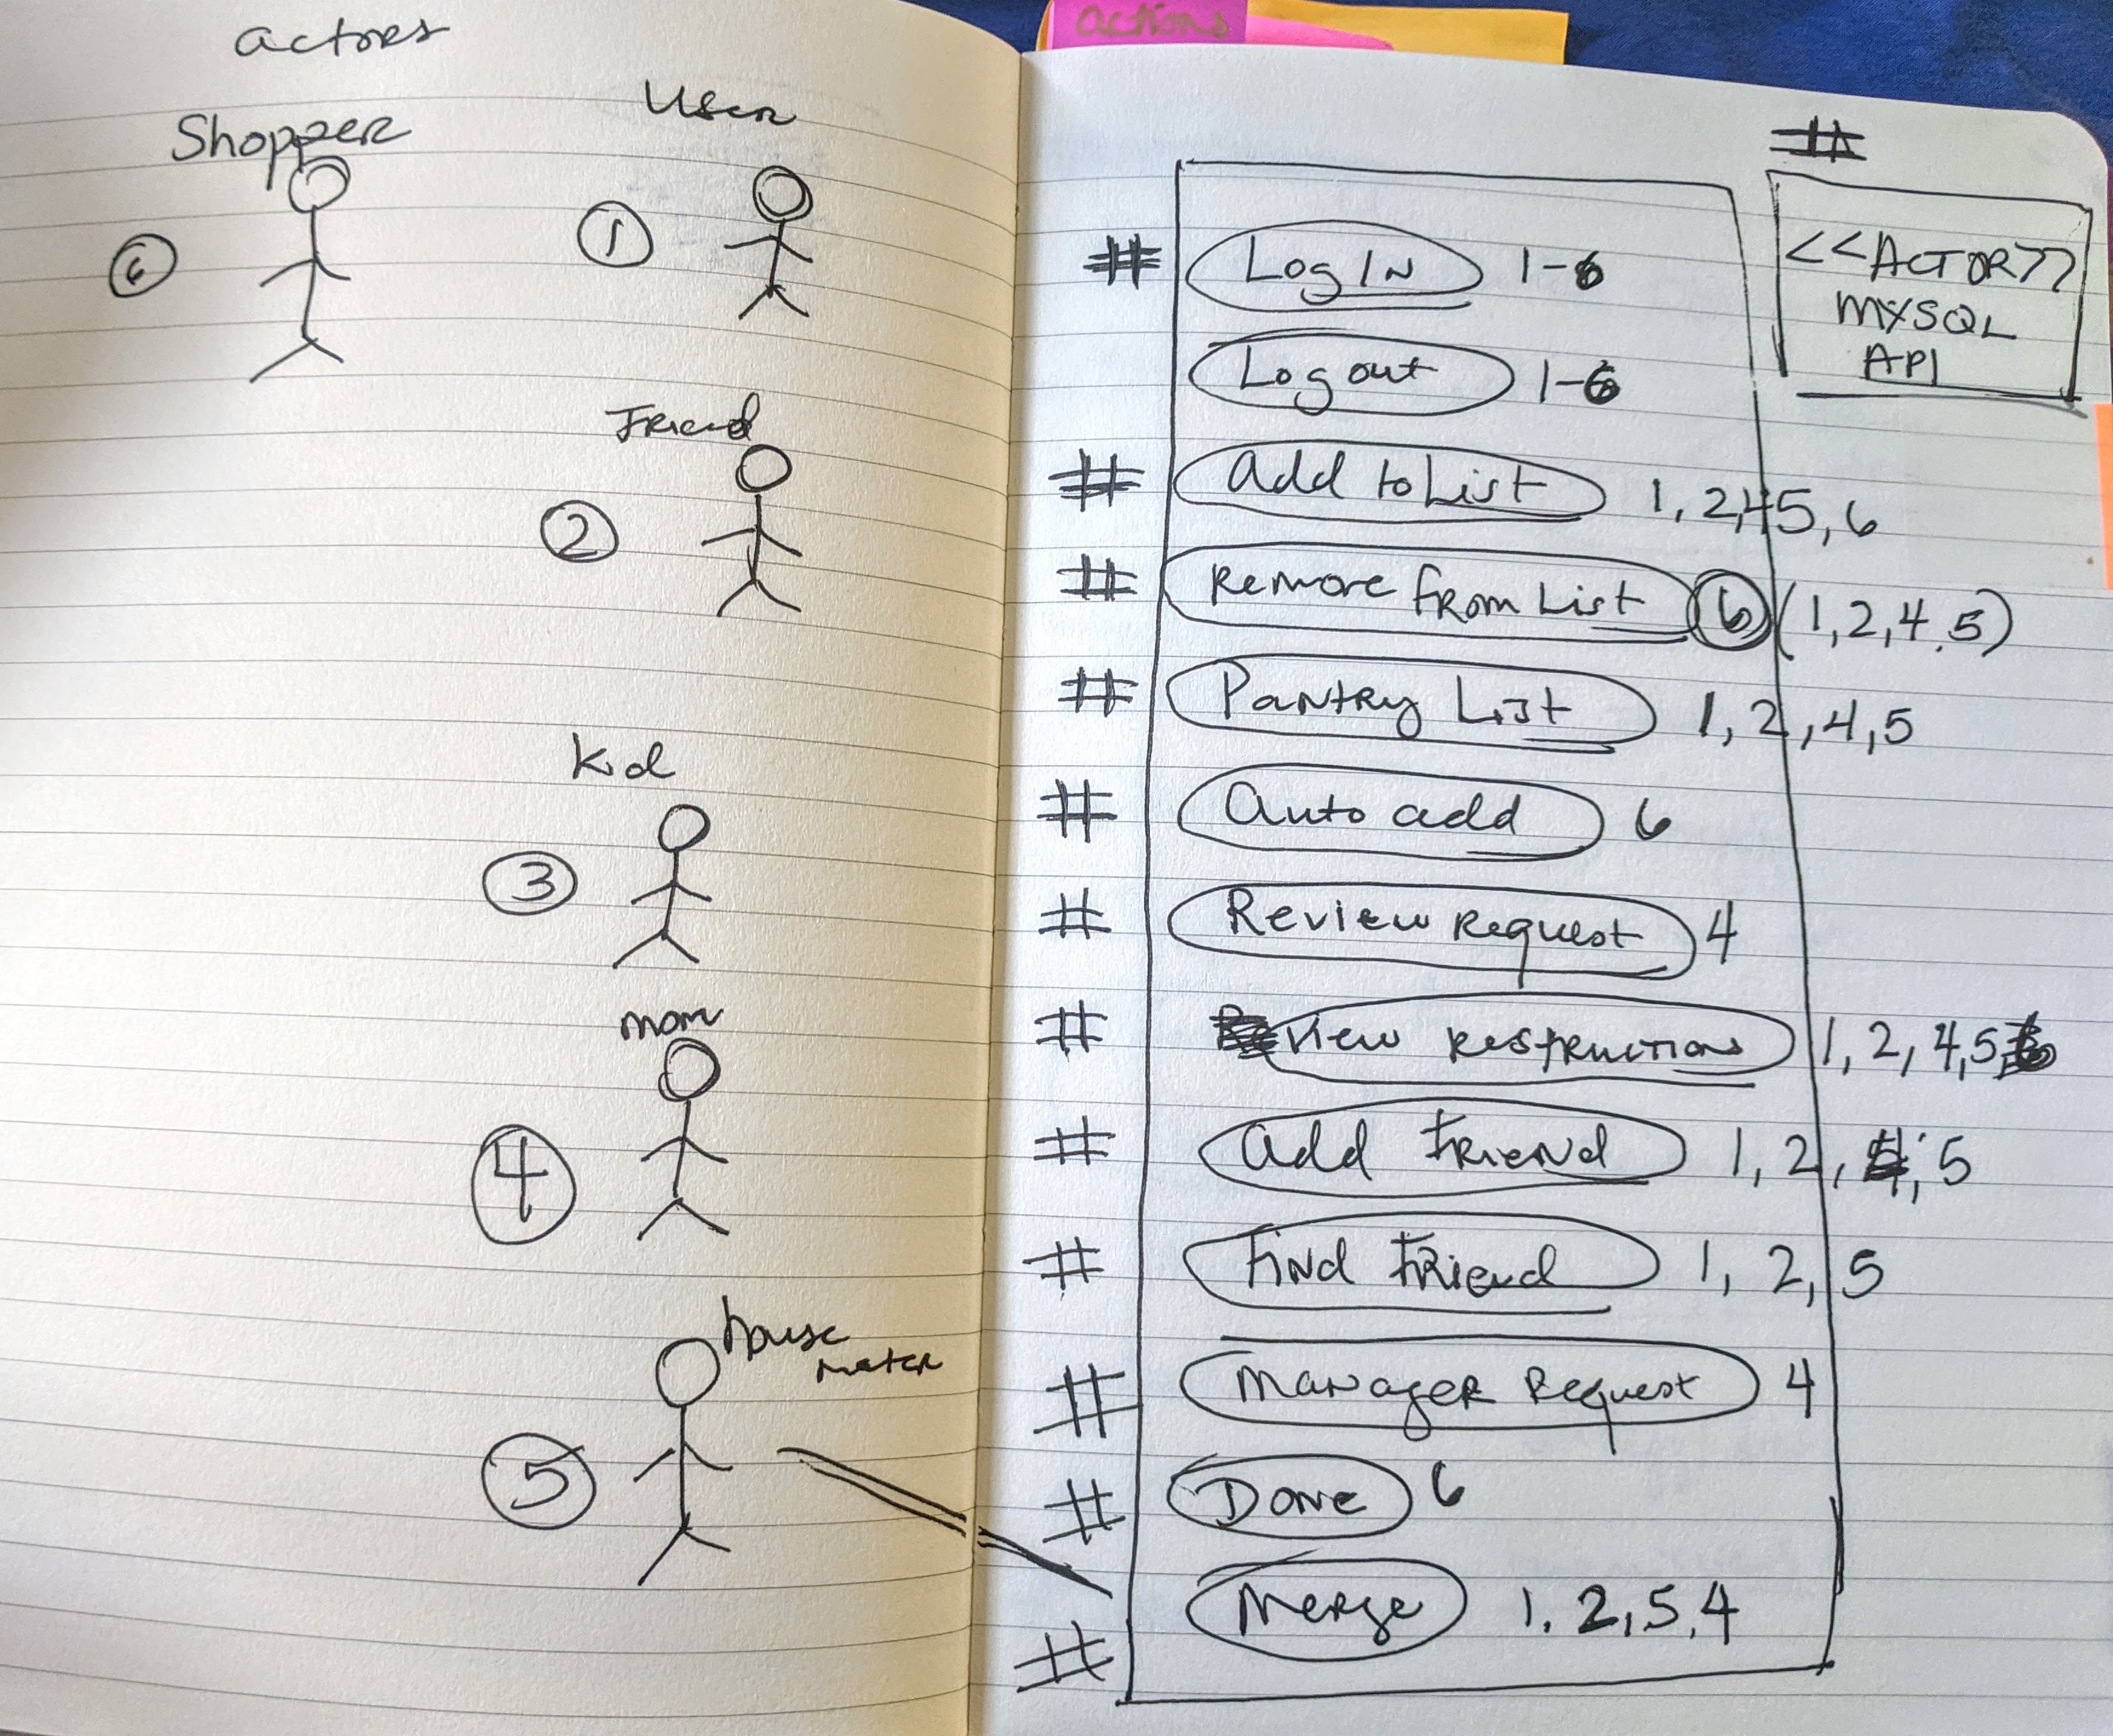 actors
Shopper
User
6
1
Friend
2
Kid
3
mom
4
house
mater
5
actions
#
<<ACTOR>>
MYSQL
API
# Log IN 1-6
Log out 1-6
# add to List 1, 2,4 5, 6
# Remove from List 6 (1, 2, 4, 5)
# Pantry List 1, 2, 4, 5
# auto add 6
# Review Request 4
# View 1, 2, 4, 5
# add Friend 1, 2, 5
# Find Friend 1, 2, 5
# Manager Request 4
# Done 6
# Merge 1, 2, 5, 4